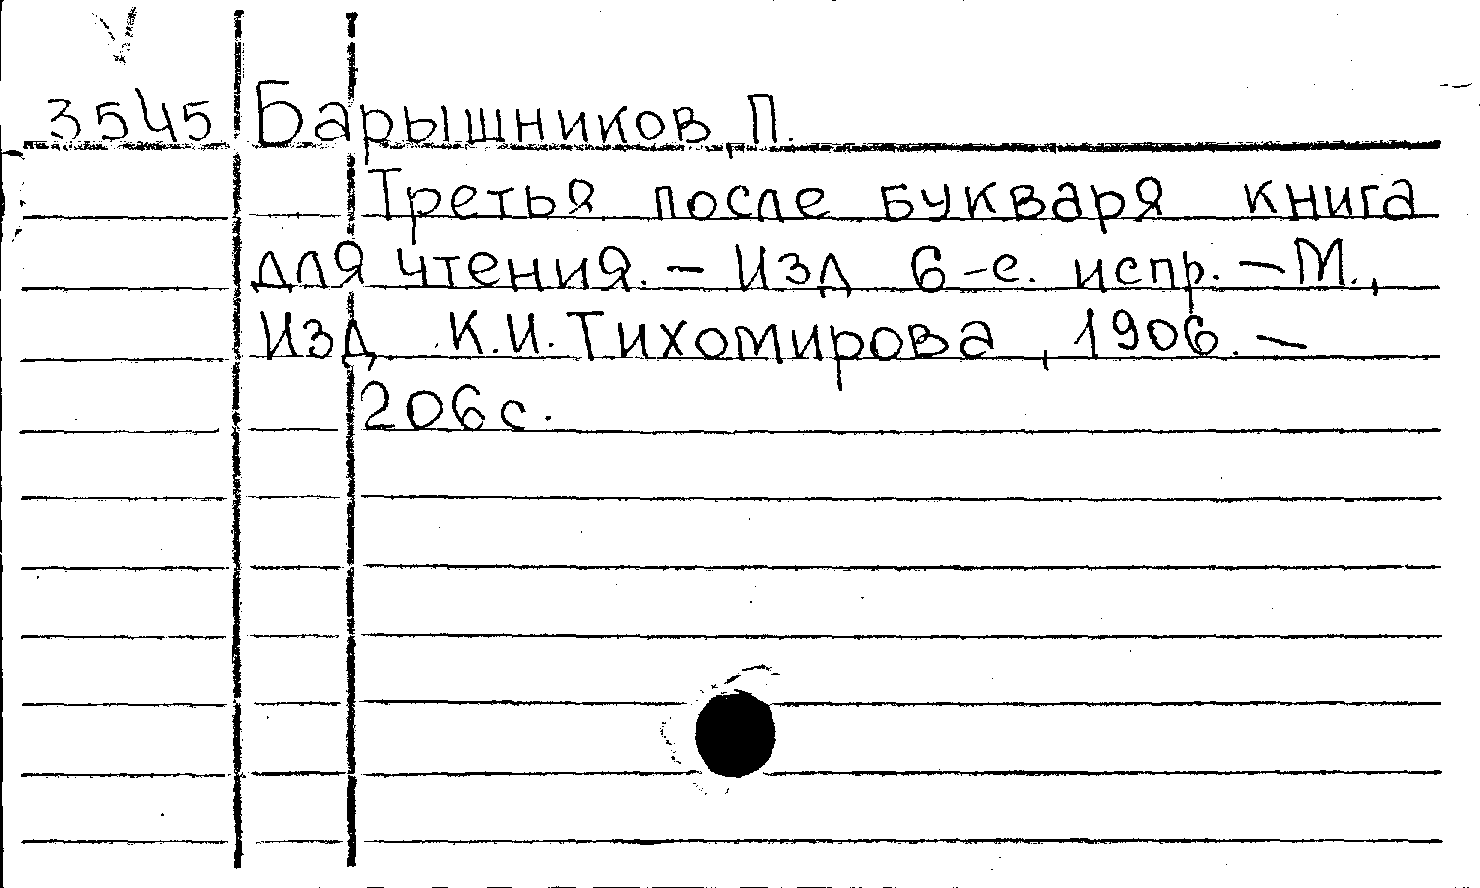 3545 Барышников, П.
Третья после букваря книга
для чтения. – Изд 6-е. испр. – М.,
Изд. К.И. Тихомирова, 1906. –
206 с.